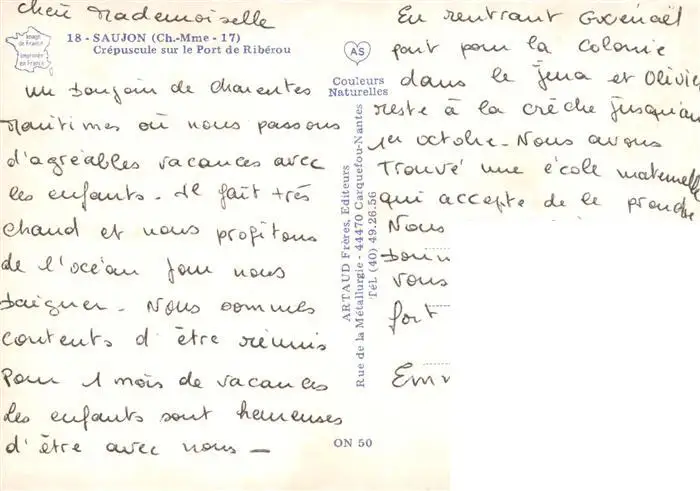 Chère Mademoiselle
Image de France
Imprimée en France
18 - SAUJON (Ch.-Mme - 17)
Crépuscule sur le Port de Ribérou
un bonjour de charentes
Maritimes où nous passons
d'agréables vacances avec
les enfants. Il fait très
chaud et nous profitons
de l'océan pour nous
baigner. Nous sommes
contents d'être réunis
Pour 1 mois de vacances
Les enfants sont heureuses
d'être avec nous —
AS
Couleurs
Naturelles
ARTAUD Frères, Editeurs
Rue de la Métallurgie - 44470 Carquefou-Nantes
Tél. (40) 49.26.56
ON 50
En rentrant Gwenaël
part pour la colonie
dans le Jura et Olivie
reste à la crèche jusqu'au
1er octobre. Nous avons
Trouvé une école maternelle
qui accepte de le prendre
Nous
bonn
vous
fort
Emm